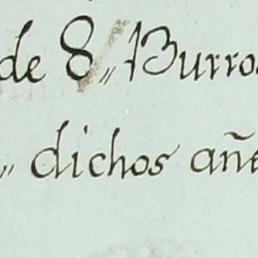 de 8,, Burros
,, dichos añe